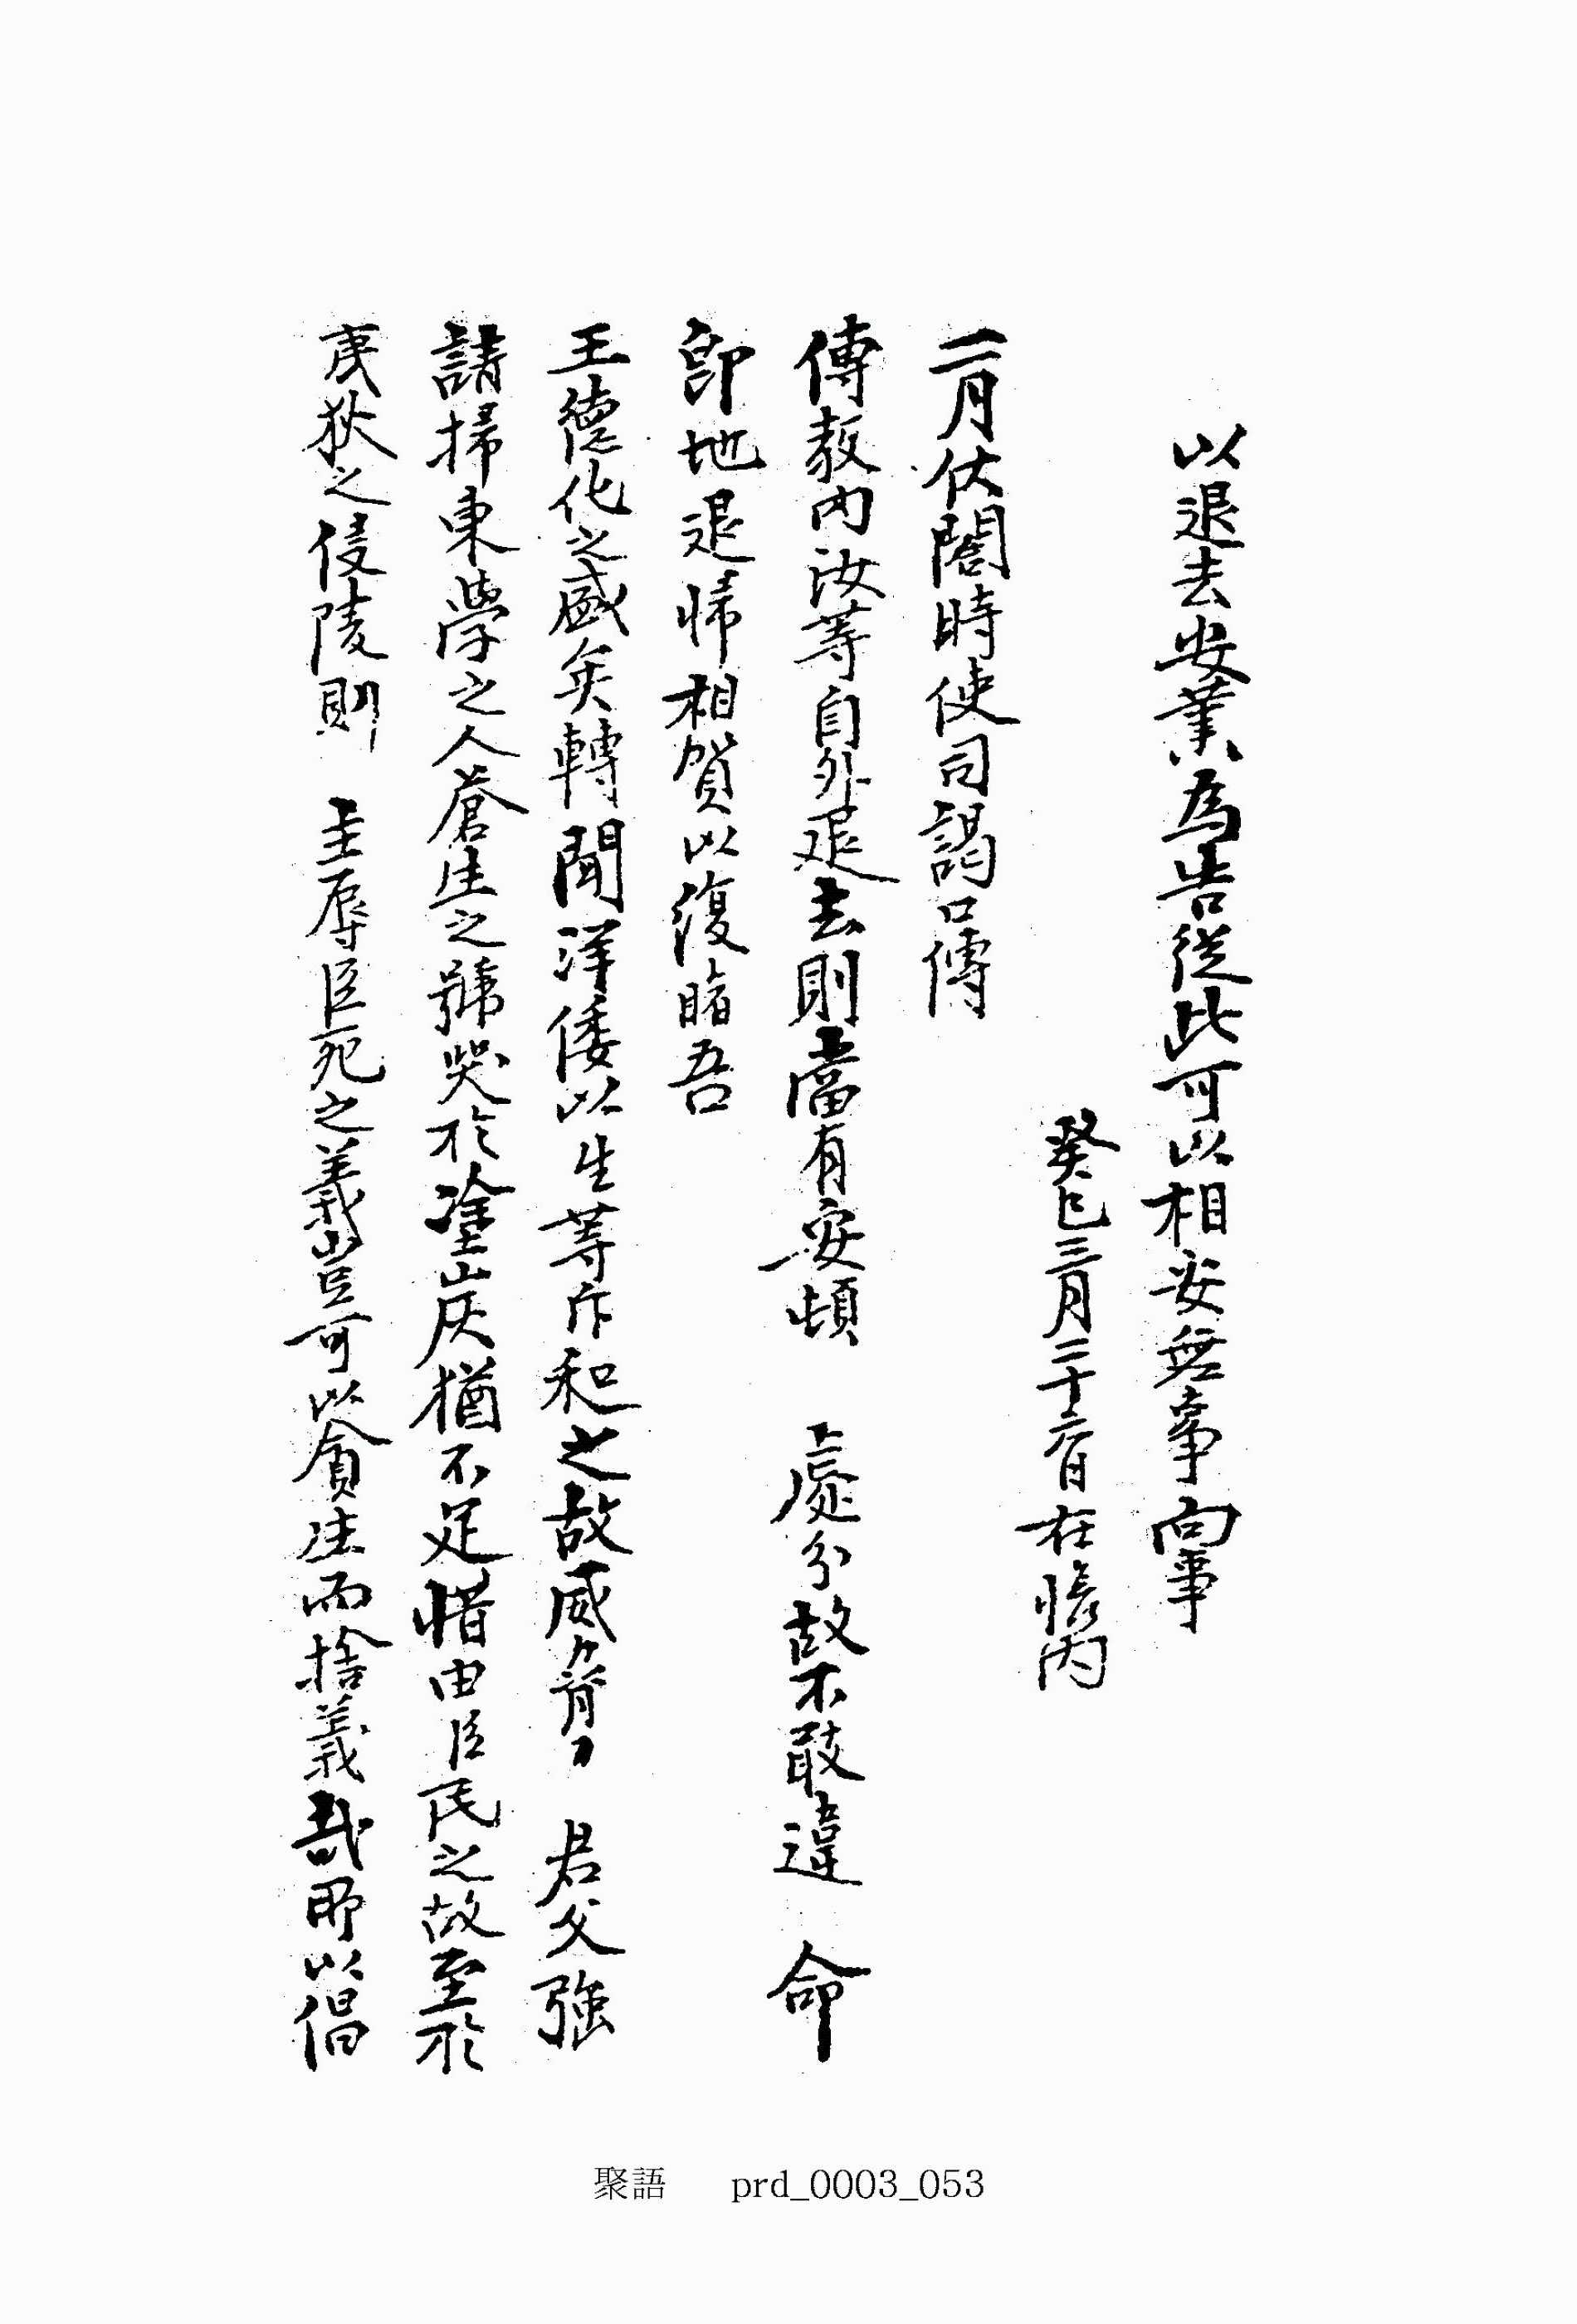 以退去安業爲告從此可以相安無事向事
癸巳三月二十六日在帳內
二月伏閤時使司謁口傳
傳教內汝等自外退去則當有安頓 處分故不敢違 命
卽地退歸相賀以復睹吾
王德化之盛矣轉聞洋倭以生等斥和之故威脅 君父強
請掃東學之人蒼生之號哭於塗山灰猶不足惜由臣民之故至於
夷狄之侵陵則 主辱臣死之義豈可以貪生而捨義哉卽以倡
聚語 prd_0003_053